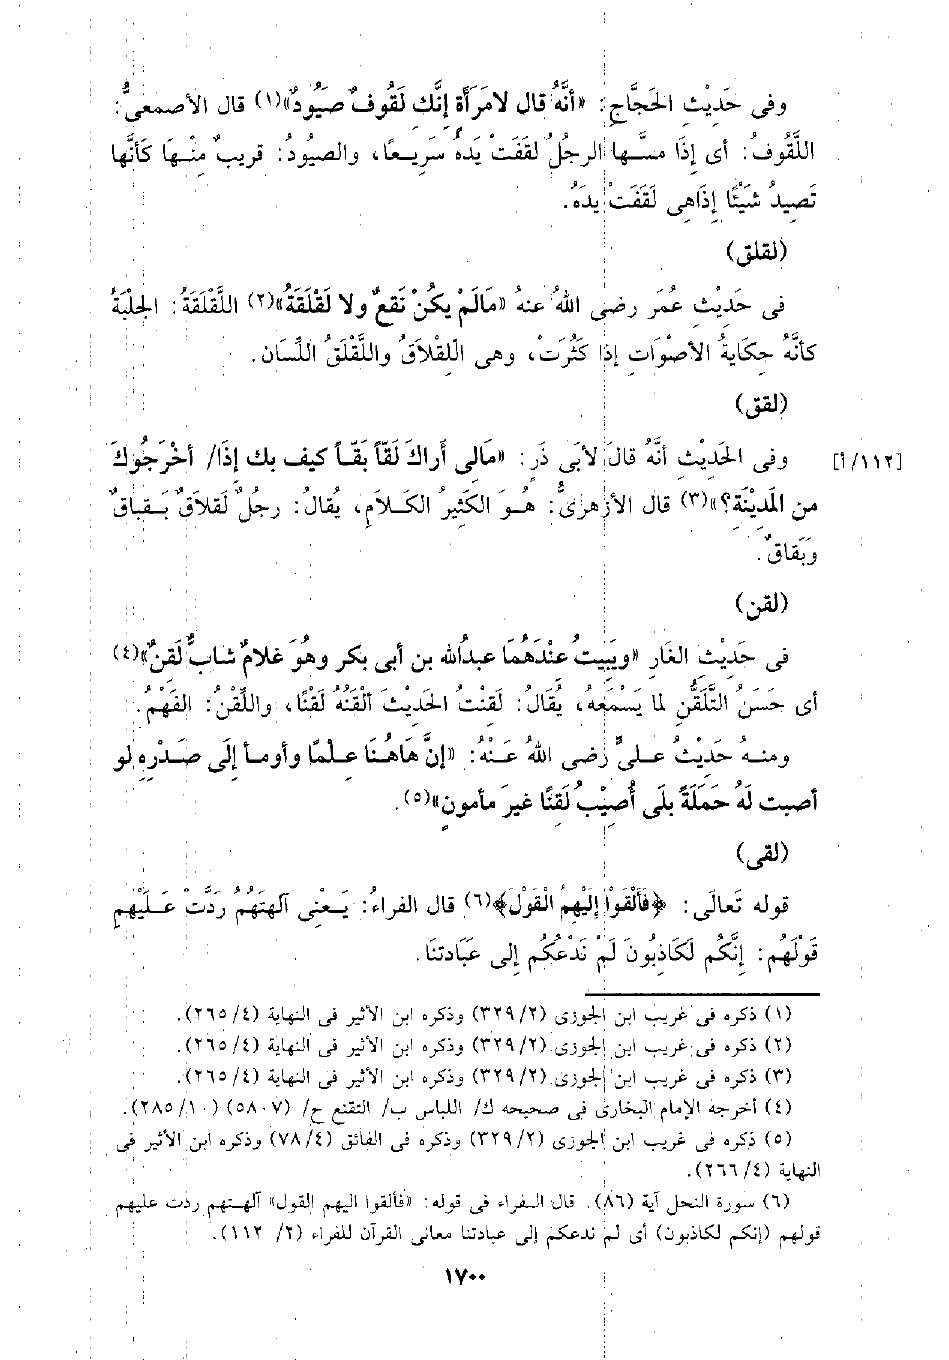 وفى حَدِيْثِ الحَجَّاجِ: «أنَّهُ قال لامَرَأَة إِنَّك لَقُوفٌ صيُودٌ»(١) قال الأصمعىُّ:
اللَّقُوفُ: أى إِذَا مسَّها الرجلُ لقفَت يدَهُ سَرِيعًا، والصيُودُ: قريبٌ منْها كَأنَّها
تَصِيدُ شَيْئًا إِذَاهِى لَقَفَتْ يدَهُ.
(لقلق)
فى حَدِيْثِ عُمَر رضى اللهُ عنهُ «مَالَمْ يكُنْ نَقعٌ ولا لَقْلَقَةُ»(٢) اللَّقْلَقَةُ: الجلبَةُ
كأنَّهُ حِكَايةُ الأصْوَاتِ إِذا كَثُرَتْ، وهى الّلِقْلاَقُ واللَّقْلَقُ اللِّسَان.
(لقق)
وفى الحَدِيْثِ أنَّهُ قالَ لأبَى ذَرٍ: «مَالِى أَراكَ لَقّاً بَقّاً كيف بك إِذَا/ أخْرَجُوكَ
[١١٢/أ]
من المَدِيْنَةِ؟»(٣) قال الأزهرىُّ: هُوَ الكَثِيرُ الكَلاَمِ، يُقالُ: رجلٌ لَقلاَقٌ بَقباقٌ
وبَقَاقٌ.
(لقن)
فى حَدِيْثِ الغَارِ «ويَبِيتُ عِنْدَهُمَا عبدُالله بن أبى بكر وهُوَ غلامٌ شابٌّ لَقنٌ»(٤)
أى حَسَنُ التَّلَقُّنِ لما يَسْمَعُه، يُقَالُ: لَقِنْتُ الحَدِيثَ ألْقَنُهُ لَقْنًا، واللَّقْنُ: الفَهْمُ.
ومنهُ حَدِيْثُ علىٍّ رَضى اللهُ عَنْهُ: «إنَّ هَاهُنَا عِلْمًا وأومأ إِلَى صَدْرِهِ لو
أصبت لَهُ حَمَلَةً بلَى أُصيْبُ لَقِنًا غيرَ مأمونٍ»(٥).
(لقى)
قوله تَعالَى: ﴿فَأَلْقَوْا إِلَيْهِمُ الْقَوْلَ﴾(٦) قال الفراءُ: يَعْنِى آلهتَهُمْ رَدَّتْ عَلَيْهِم
قَوْلَهُم: إِنَّكُم لَكَاذِبُونَ لَمْ نَدْعُكُم إِلى عبَادتنَا.
(١) ذكره فى غريب ابن الجوزى (٣٢٩/٢) وذكره ابن الأثير فى النهاية (٢٦٥/٤).
(٢) ذكره فى غريب ابن الجوزى (٣٢٩/٢) وذكره ابن الأثير فى النهاية (٢٦٥/٤).
(٣) ذكره فى غريب ابن الجوزى (٣٢٩/٢) وذكره ابن الأثير فى النهاية (٢٦٥/٤).
(٤) أخرجه الإمام البخارى فى صحيحه ك/ اللباس ب/ التقنع ح/ (٥٨٠٧) (٢٨٥/١٠).
(٥) ذكره فى غريب ابن الجوزى (٣٢٩/٢) وذكره فى الفائق (٧٨/٤) وذكره ابن الأثير فى
النهاية (٢٦٦/٤).
(٦) سورة النحل آية (٨٦). قال الفراء فى قوله: «فألقوا اليهم القول» آلهتهم ردت عليهم
قولهم (إنكم لكاذبون) أى لم ندعكم إلى عبادتنا معانى القرآن للفراء (٢/ ١١٢).
١٧٠٠